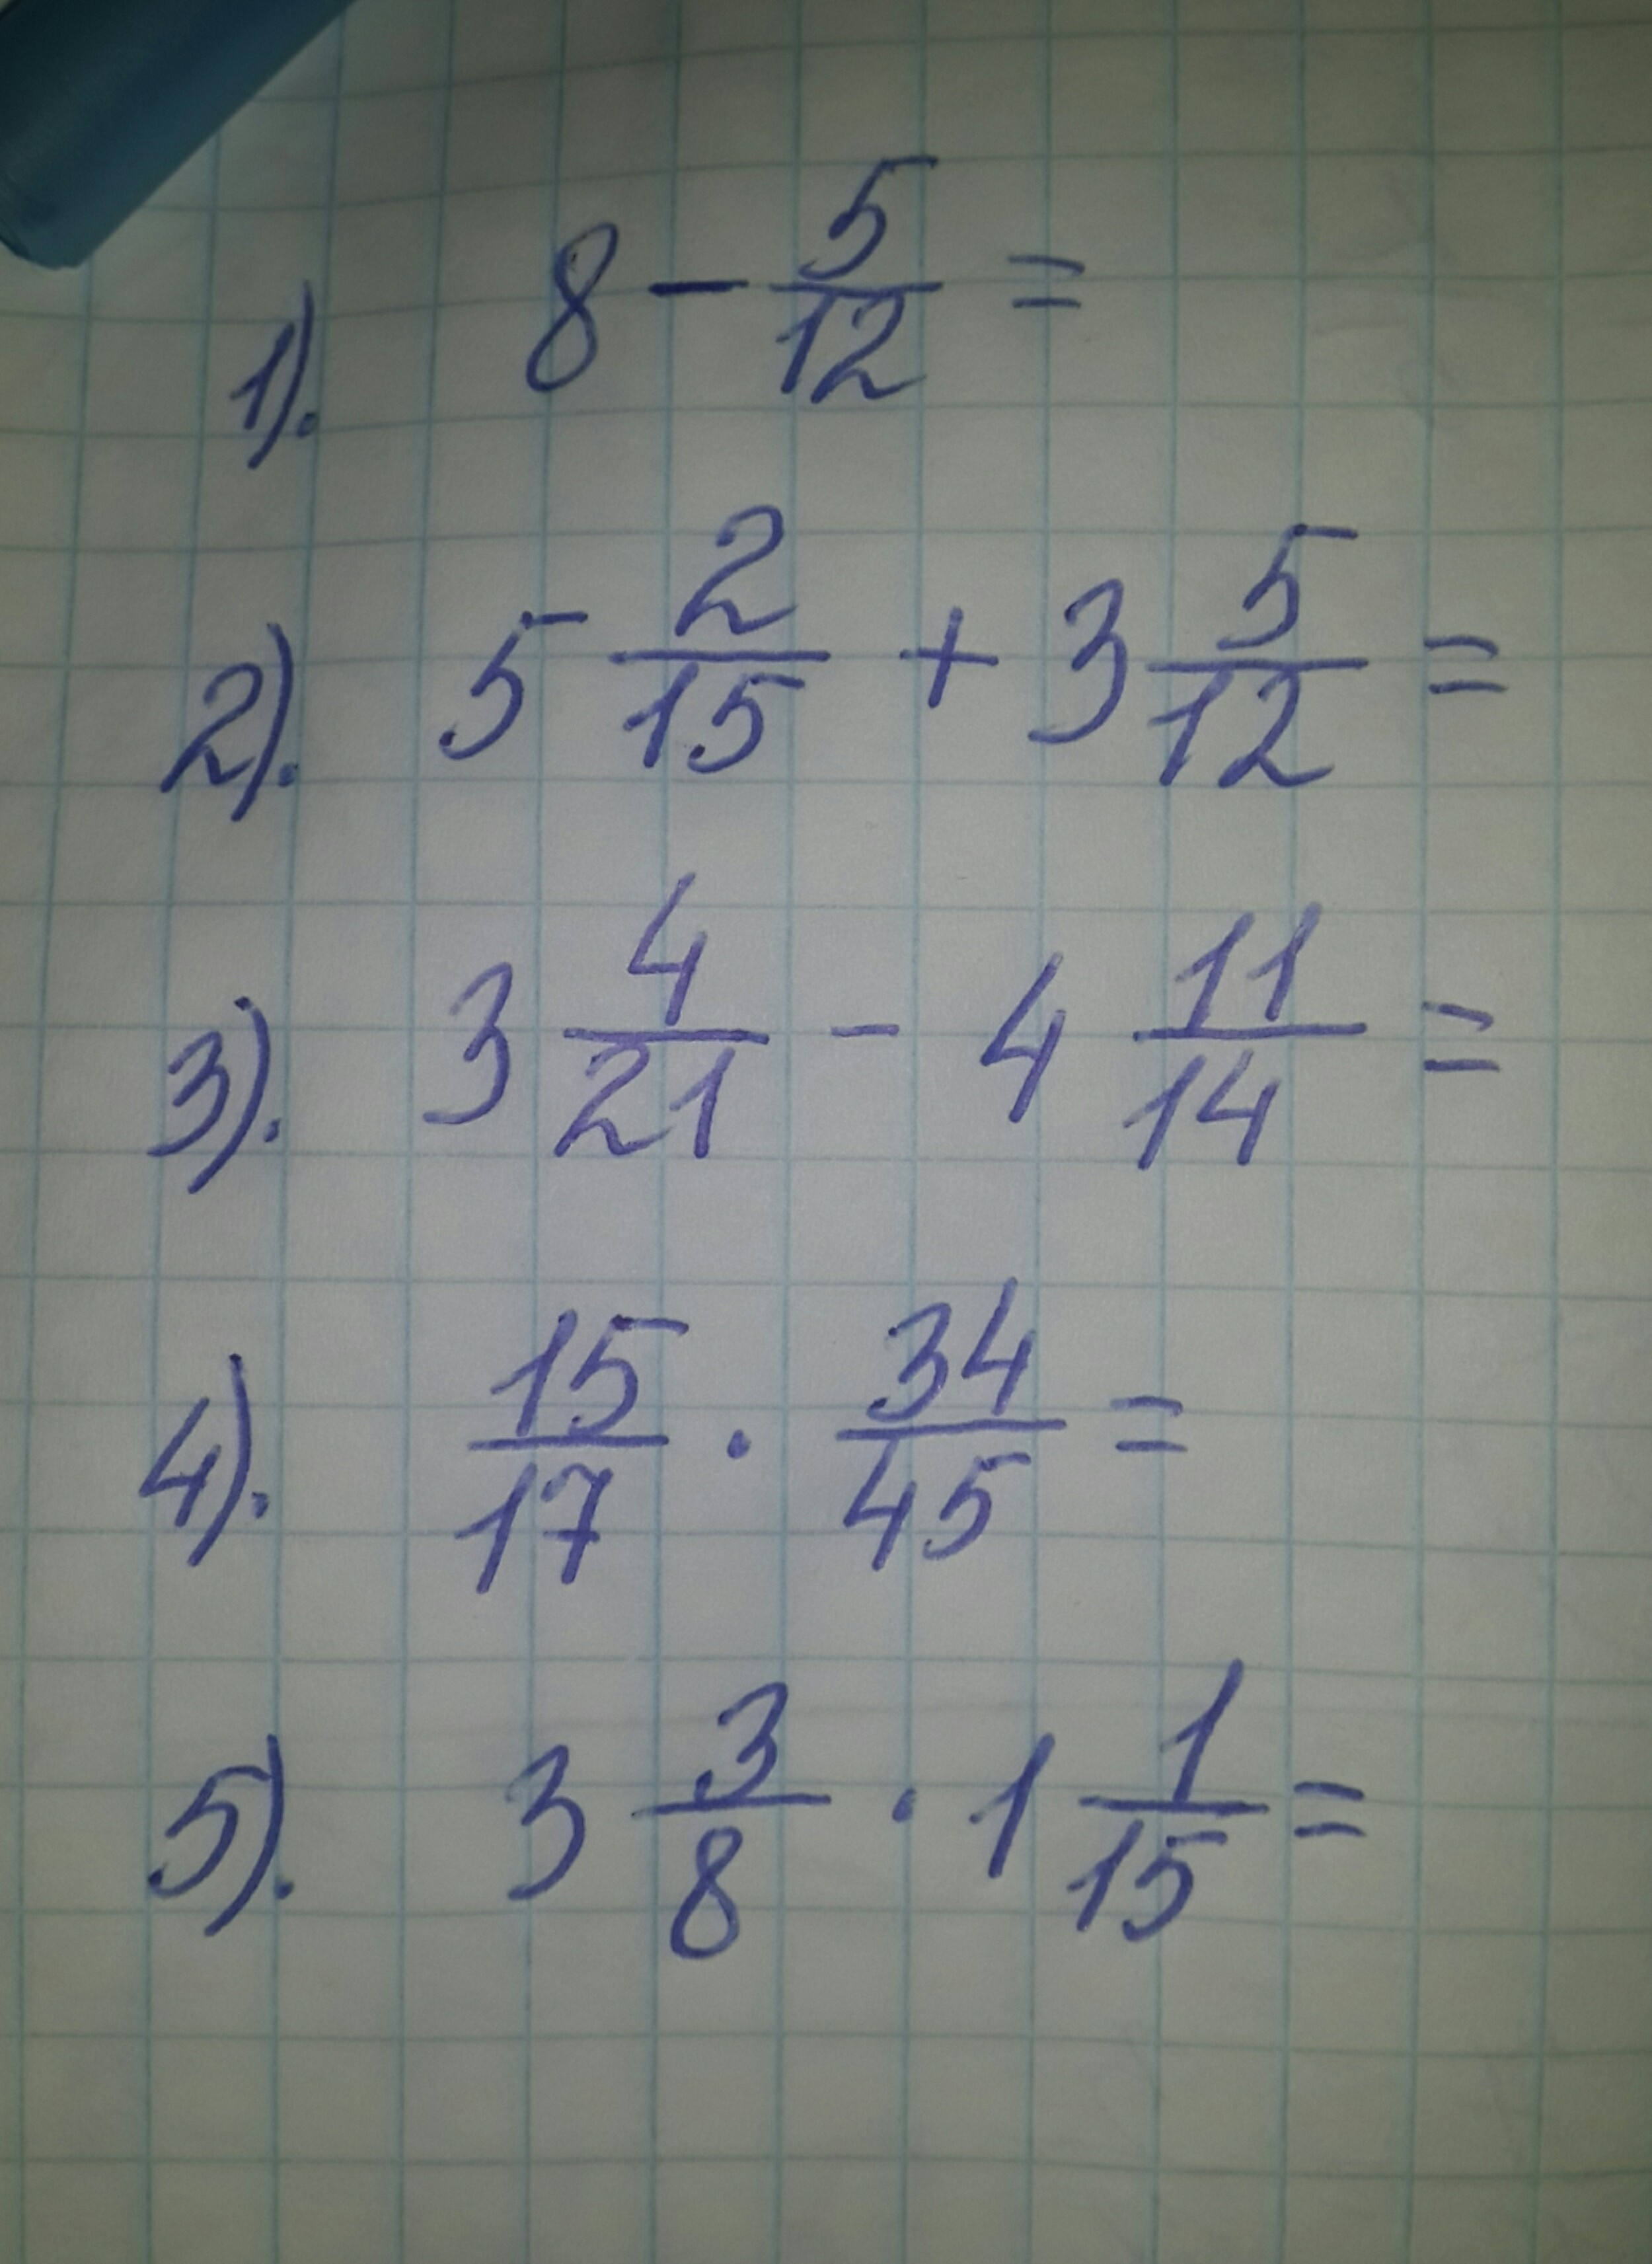 1). 8 - 5/12 =
2). 5 2/15 + 3 5/12 =
3). 3 4/21 - 4 11/14 =
4). 15/17 · 34/45 =
5). 3 3/8 · 1 1/15 =